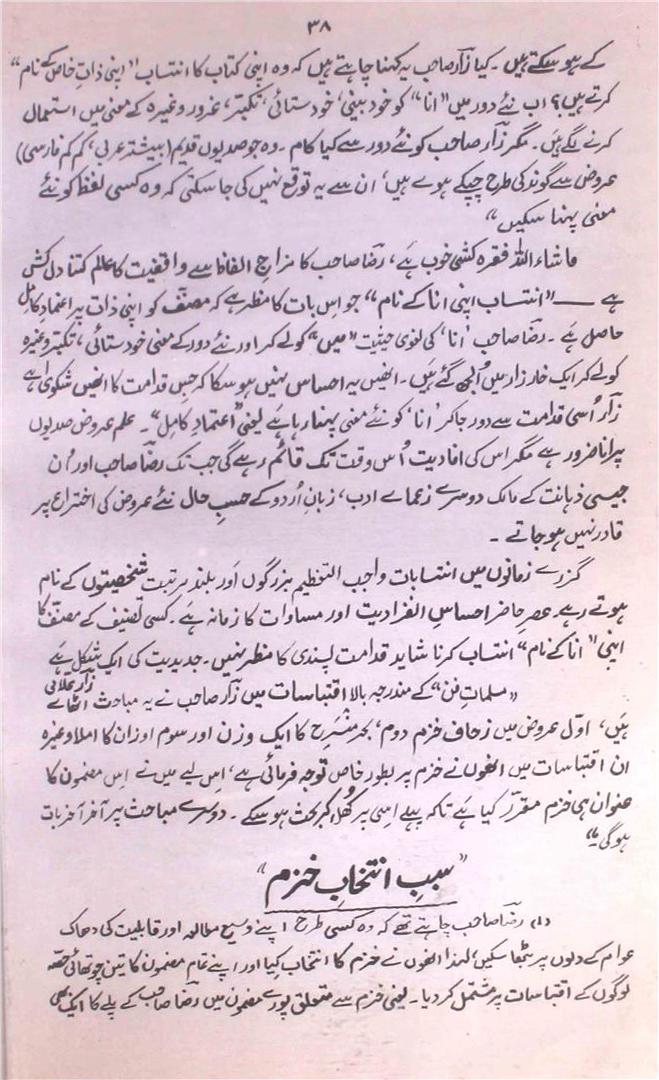 ۳۸
کے ہو سکتے ہیں۔ کیا زآر صاحب یہ کہنا چاہتے ہیں کہ وہ اپنی کتاب کا انتساب "اپنی ذاتِ خاص کے نام"
کرتے ہیں؟ اب نئے دور میں "انا" کو خود بینی، خود ستائی، تکبّر، غرور وغیرہ کے معنی میں استعمال
کرنے لگے ہیں۔ مگر زآر صاحب کو نئے دور سے کیا کام۔ وہ جو صدیوں قدیم (بیشتر عربی، کم کم فارسی)
عروض سے گوند کی طرح چپکے ہوے ہیں، ان سے یہ توقع نہیں کی جا سکتی کہ وہ کسی لفظ کو نئے
معنی پہنا سکیں"
ماشاء اللہ فقرہ کشی خوب ہے، رضآ صاحب کا مزاجِ الفاظ سے واقفیت کا عالم کتنا دل کش
ہے ـــــ "انتساب اپنی انا کے نام" جو اس بات کا مظہر ہے کہ مصنّف کو اپنی ذات پر اعتماد کامل
حاصل ہے۔ رضآ صاحب 'انا' کی لغوی حیثیت "میں" کو لے کر اور نئے دور کے معنی خود ستائی، تکبّر وغیرہ
کو لے کر ایک خار زار میں اُلجھ گئے ہیں۔ انھیں یہ احساس نہیں ہو سکا کہ جس قدامت کا انھیں شکوٰی ہے
زآر اُسی قدامت سے دور جا کر 'انا' کو نئے معنی پہنا رہا ہے یعنی "اعتمادِ کامل"۔ علم عروض صدیوں
پرانا ضرور ہے مگر اس کی افادیت اُس وقت تک قائم رہے گی جب تک رضآ صاحب اور اُن
جیسی ذہانت کے مالک دوسرے زعماے ادب، زبانِ اُردو کے حسبِ حال نئے عروض کی اختراع پر
قادر نہیں ہو جاتے۔
گزرے زمانوں میں انتسابات واجب التعظیم بزرگوں اور بلند مرتبت شخصیتوں کے نام
ہوتے رہے عصرِ حاضر احساسِ انفرادیت اور مساوات کا زمانہ ہے۔ کسی تصنیف کے مصنّف کا
اپنی "انا کے نام" انتساب کرنا شاید قدامت پسندی کا مظہر نہیں۔ جدیدیت کی ایک شکل ہے
"مسلماتِ فن" کے مندرجہ بالا اقتباسات میں زآر صاحب نے یہ مباحث اٹھاے زار علامی
ہیں، اوّل عروض میں زحاف خزم دوم، بحر منسرح کا ایک وزن اور سوم اوزان کا املا وغیرہ
ان اقتباسات میں انھوں نے خزم پر بطور خاص توجہ فرمائی ہے، اس لیے میں نے اس مضمون کا
عنوان ہی خزم مقرر کیا ہے تاکہ پہلے اسی پر کُھل کر بحث ہو سکے۔ دوسرے مباحث پر آخر آخر بات
ہو گی"
"سببِ انتخابِ خزم"
(۱) رضآ صاحب چاہتے تھے کہ وہ کسی طرح اپنے وسیع مطالعہ اور قابلیت کی دھاک
عوام کے دلوں پر بٹھا سکیں، لہٰذا انھوں نے خزم کا انتخاب کیا اور اپنے تمام مضمون کا تین چوتھائی حصّہ
لوگوں کے اقتباسات پر مشتمل کر دیا۔ یعنی خزم سے متعلق پورے مضمون میں رضآ صاحب کے پلے کا ایک بھی